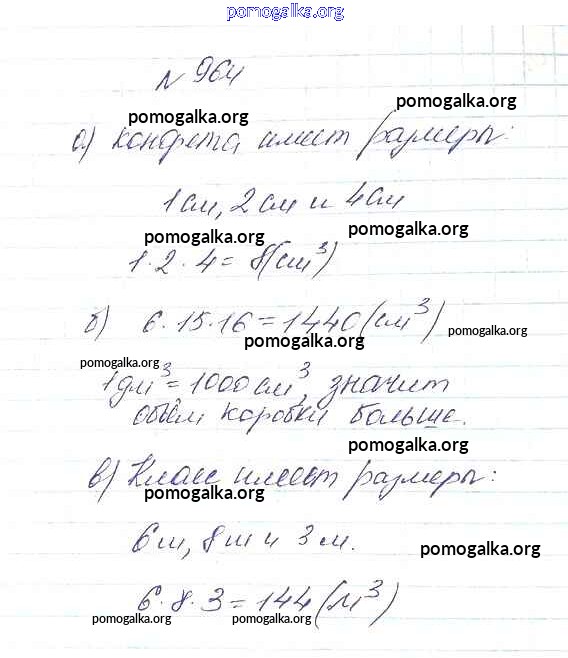 pomogalka.org
№ 964
pomogalka.org pomogalka.org
а) Конфета имеет размеры:
1 см, 2 см и 4 см
pomogalka.org pomogalka.org
1·2·4 = 8 (см³)
б) 6·15·16 = 1440 (см³)
pomogalka.org pomogalka.org
pomogalka.org
1 дм³ = 1000 см³, значит
объём коробки больше.
pomogalka.org
в) Класс имеет размеры:
pomogalka.org
6 м, 8 м и 3 м.
pomogalka.org
6·8·3 = 144 (м³)
pomogalka.org pomogalka.org